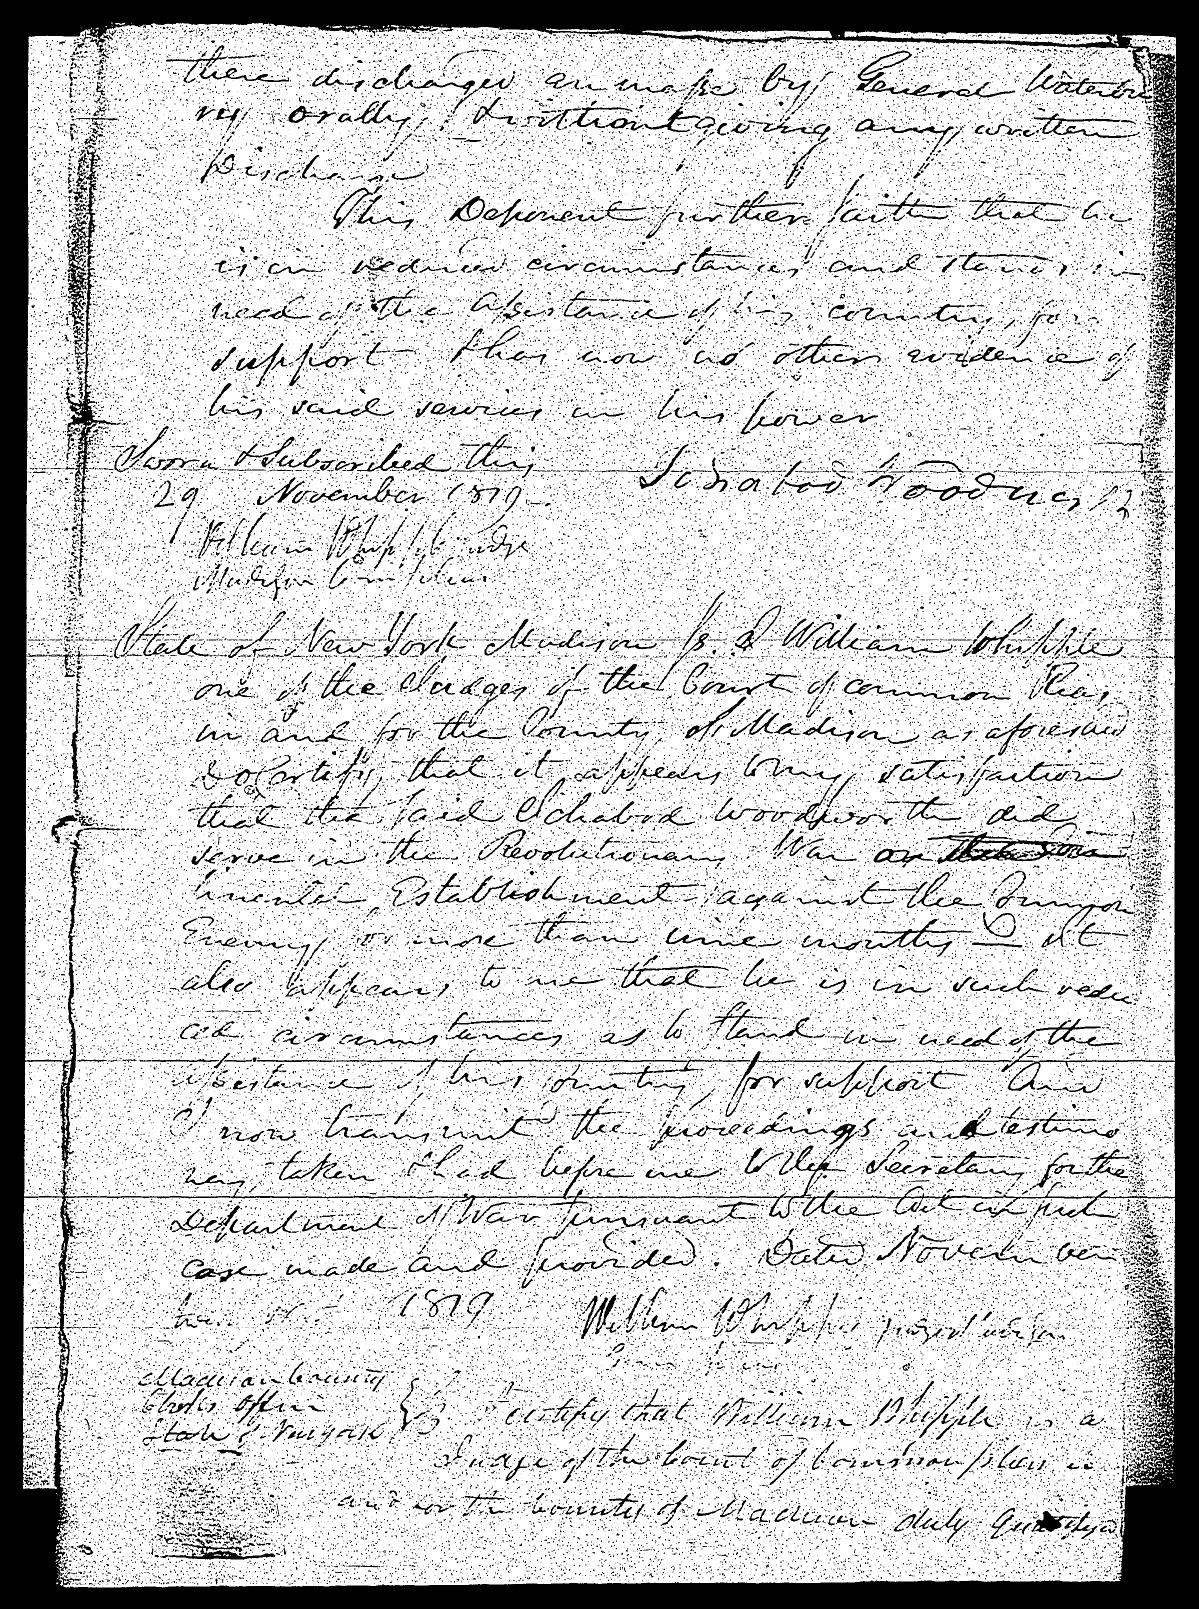 there discharged en masse by General Waterbu
ry orally, & without giving any written
Discharge
This Deponent further saith that he
is in reduced circumstances and stands in
need of the assistance of his country, for
support & has now no other evidence of
his said services in his power
Sworn & Subscribed this
29 November 1819.
Ichabod Woodworth
William Whipple Judge
Madison Com pleas
State of New York Madison ss. I William Whipple
one of the Judges of the Court of common Pleas
in and for the County of Madison as aforesaid
Do Certify that it appears to my satisfaction
that the said Ichabod Woodworth did
serve in the Revolutionary War on the Con
tinental Establishment against the Common
Enemy for more than nine months & it
also appears to me that he is in such redu
ced circumstances as to stand in need of the
assistance of his country for support And
I now transmit the proceedings and testimo
ny, taken & had before me to the Secretary for the
Department of War pursuant to the Act in such
case made and provided. Dated November
1819
William Whipple
Madison County
Clerks office
State of New york
I certify that William Whipple is a
Judge of the Court of Common pleas in
and for the County of Madison duly